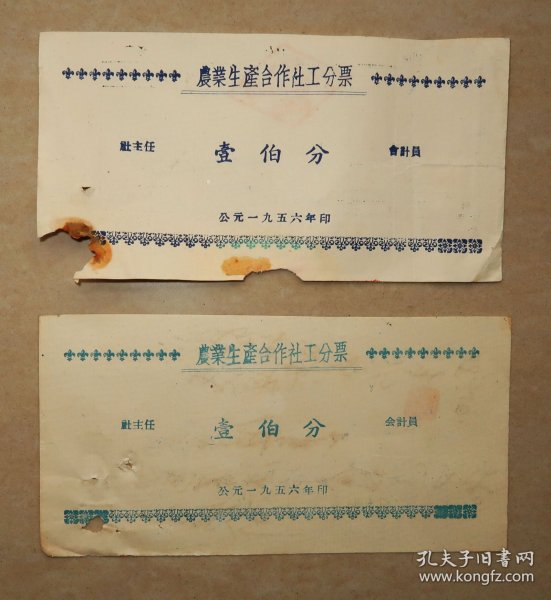 農業生產合作社工分票
社主任 壹伯分 會計員
公元一九五六年印
農業生產合作社工分票
社主任 壹伯分 会計員
公元一九五六年印
孔夫子旧书网
www.kongfz.com